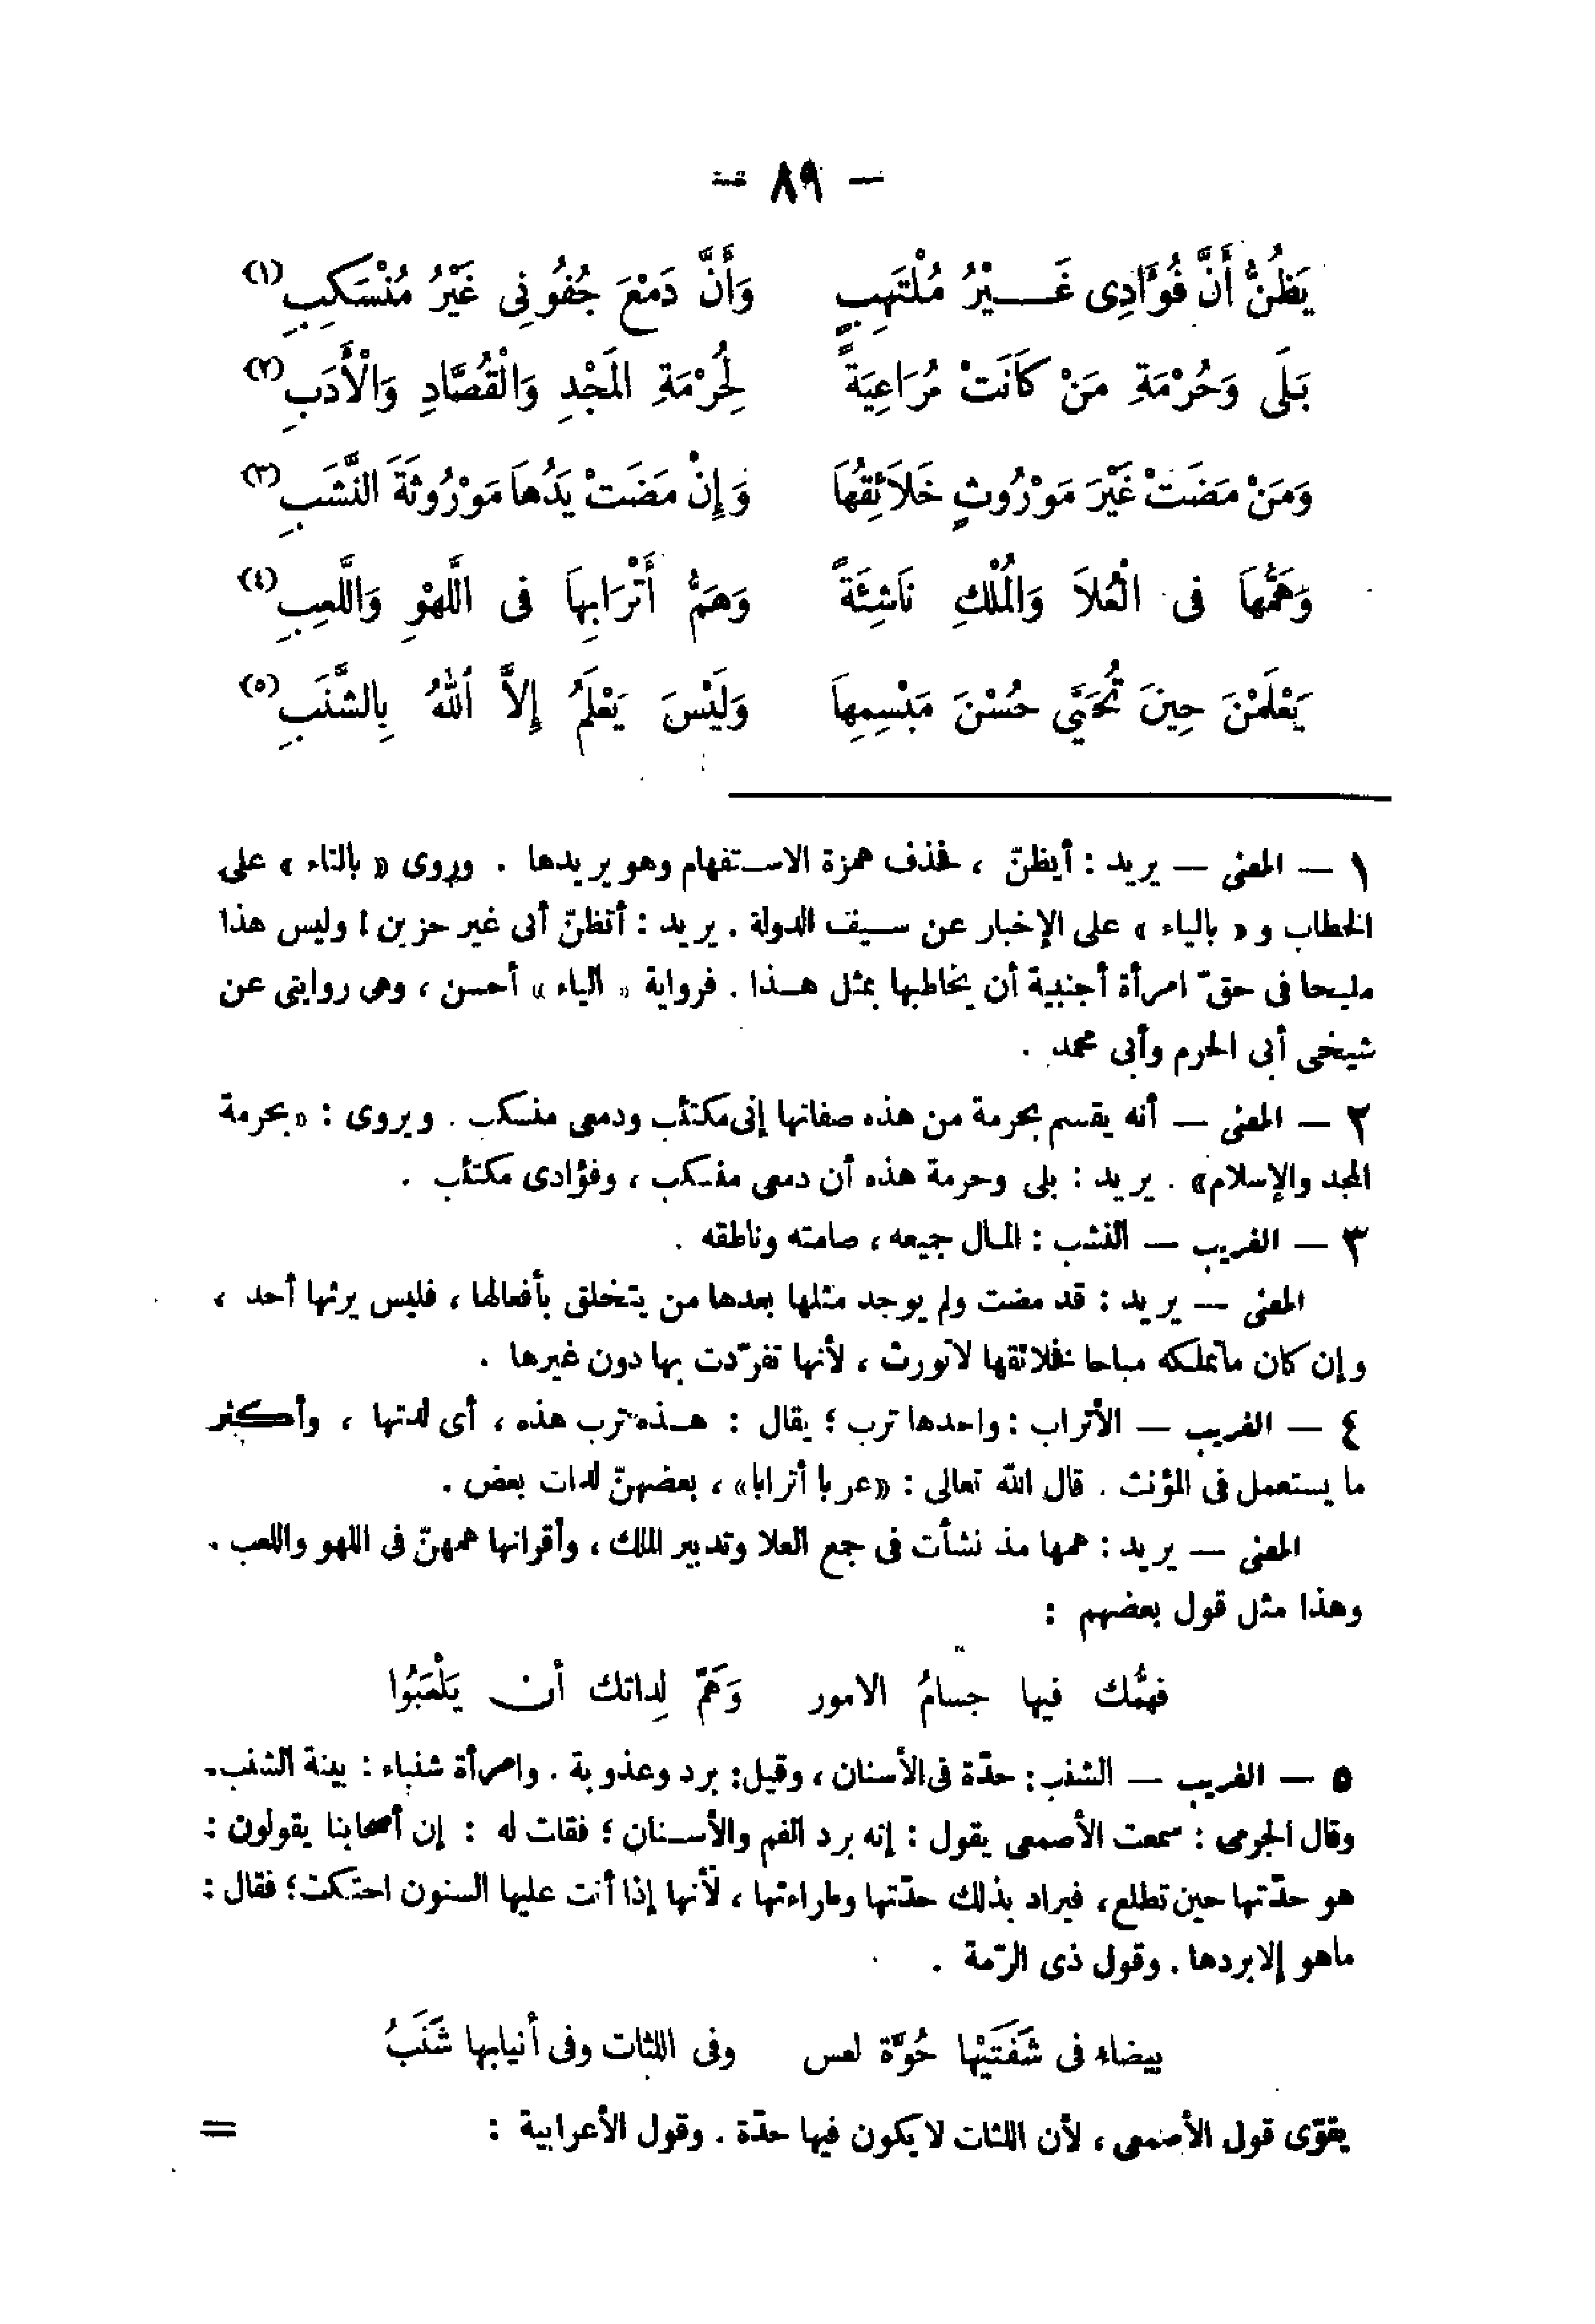 — ٨٩ —
يَظُنُّ أَنَّ فُوَّادِى غَـــيْرُ مُلْتَهِبٍ وَأَنَّ دَمْعَ جُفُونِى غَيْرُ مُنْسَكِبِ (١)
بَلَى وَحُرْمَةِ مَنْ كَانَتْ مُرَاعِيَةً لِحُرْمَةِ المَجْدِ وَالْقُصَّادِ وَالْأَدَبِ (٢)
وَمَنْ مَضَتْ غَيْرَ مَوْرُوثٍ خَلاَئِقُهَا وَإِنْ مَضَتْ يَدُهاَ مَوْرُوثَةَ النَّشَبِ (٣)
وَهَمُّهَا فى الْعُلاَ وَالمُلْكِ نَاشِئَةً وَهَمُّ أَتْرَابِهاَ فى اللَّهْوِ وَاللَّعِبِ (٤)
يَعْلَمْنَ حِينَ تُحَيَّى حُسْنَ مَبْسِمِهاَ وَلَيْسَ يَعْلَمُ إِلاَّ اللهُ بِالشَّنَبِ (٥)
١ — المعنى — يريد : أيظنّ ، فحذف همزة الاستفهام وهو يريدها . وروى « بالتاء » على
الخطاب و « بالياء » على الإخبار عن سيف الدولة . يريد : أتظنّ أنى غير حزين ! وليس هذا
مليحا فى حقّ امرأة أجنبية أن يخاطبها بمثل هـذا . فرواية « الياء » أحسن ، وهى روايتى عن
شيخى أبى الحرم وأبى محمد .
٢ — المعنى — أنه يقسم بحرمة من هذه صفاتها إنى مكتئب ودمعى منسكب . ويروى : « بحرمة
المجد والإسلام » . يريد : بلى وحرمة هذه أن دمعى منسكب ، وفؤادى مكتئب .
٣ — الغريب — النشب : المال جميعه ، صامته وناطقه .
المعنى — يريد : قد مضت ولم يوجد مثلها بعدها من يتخلق بأفعالها ، فليس يرثها أحد ،
وإن كان ماتملكه مباحا فخلائقها لاتورث ، لأنها تفرّدت بها دون غيرها .
٤ — الغريب — الأتراب : واحدها ترب ؛ يقال : هـذه ترب هذه ، أى لدتها ، وأكثر
ما يستعمل فى المؤنث . قال الله تعالى : « عربا أترابا » ، بعضهنّ لدات بعض .
المعنى — يريد : همها مذ نشأت فى جمع العلا وتدبير الملك ، وأقرانها همهنّ فى اللهو واللعب .
وهذا مثل قول بعضهم :
فهمُّك فيها جسامُ الامور وَهَمّ لِداتك أن يَلْعَبُوا
٥ — الغريب — الشنب : حدّة فى الأسنان ، وقيل : برد وعذوبة . وامرأة شنباء : بينة الشنب .
وقال الجرمى : سمعت الأصمعى يقول : إنه برد الفم والأسـنان ؛ فقلت له : إن أصحابنا يقولون :
هو حدّتها حين تطلع ، فيراد بذلك حدّتها وطراءتها ، لأنها إذا أتت عليها السنون احتكت ؛ فقال :
ماهو إلا بردها . وقول ذى الرّمة .
بيضاء فى شَفَتَيْها حُوَّة لعس وفى اللثات وفى أنيابها شَنَبُ
يقوّى قول الأصمعى ، لأن اللثات لا يكون فيها حدّة . وقول الأعرابية : =